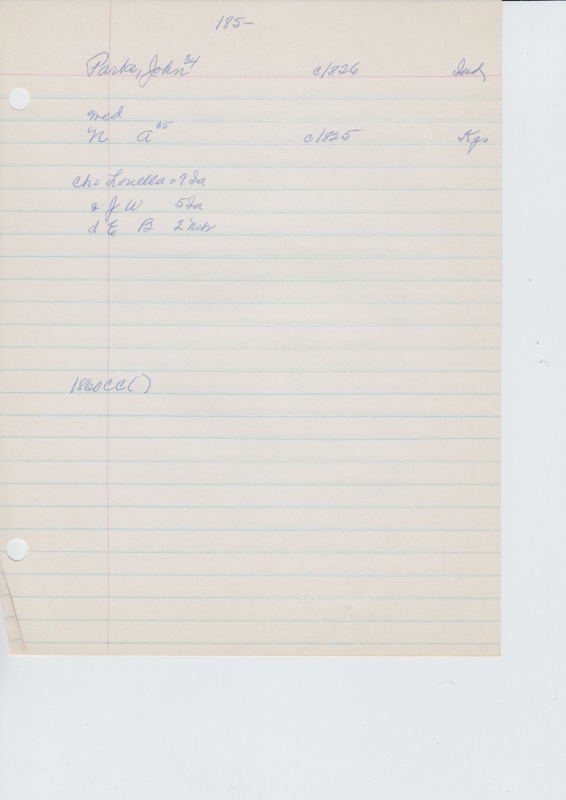 185-
Parks, John 34 c/826 Ind
med
N A 35 c/825 Ky
ch= Louella = 7 Ia
J W 5 Ia
d E B 2 Neb
1860 CC( )